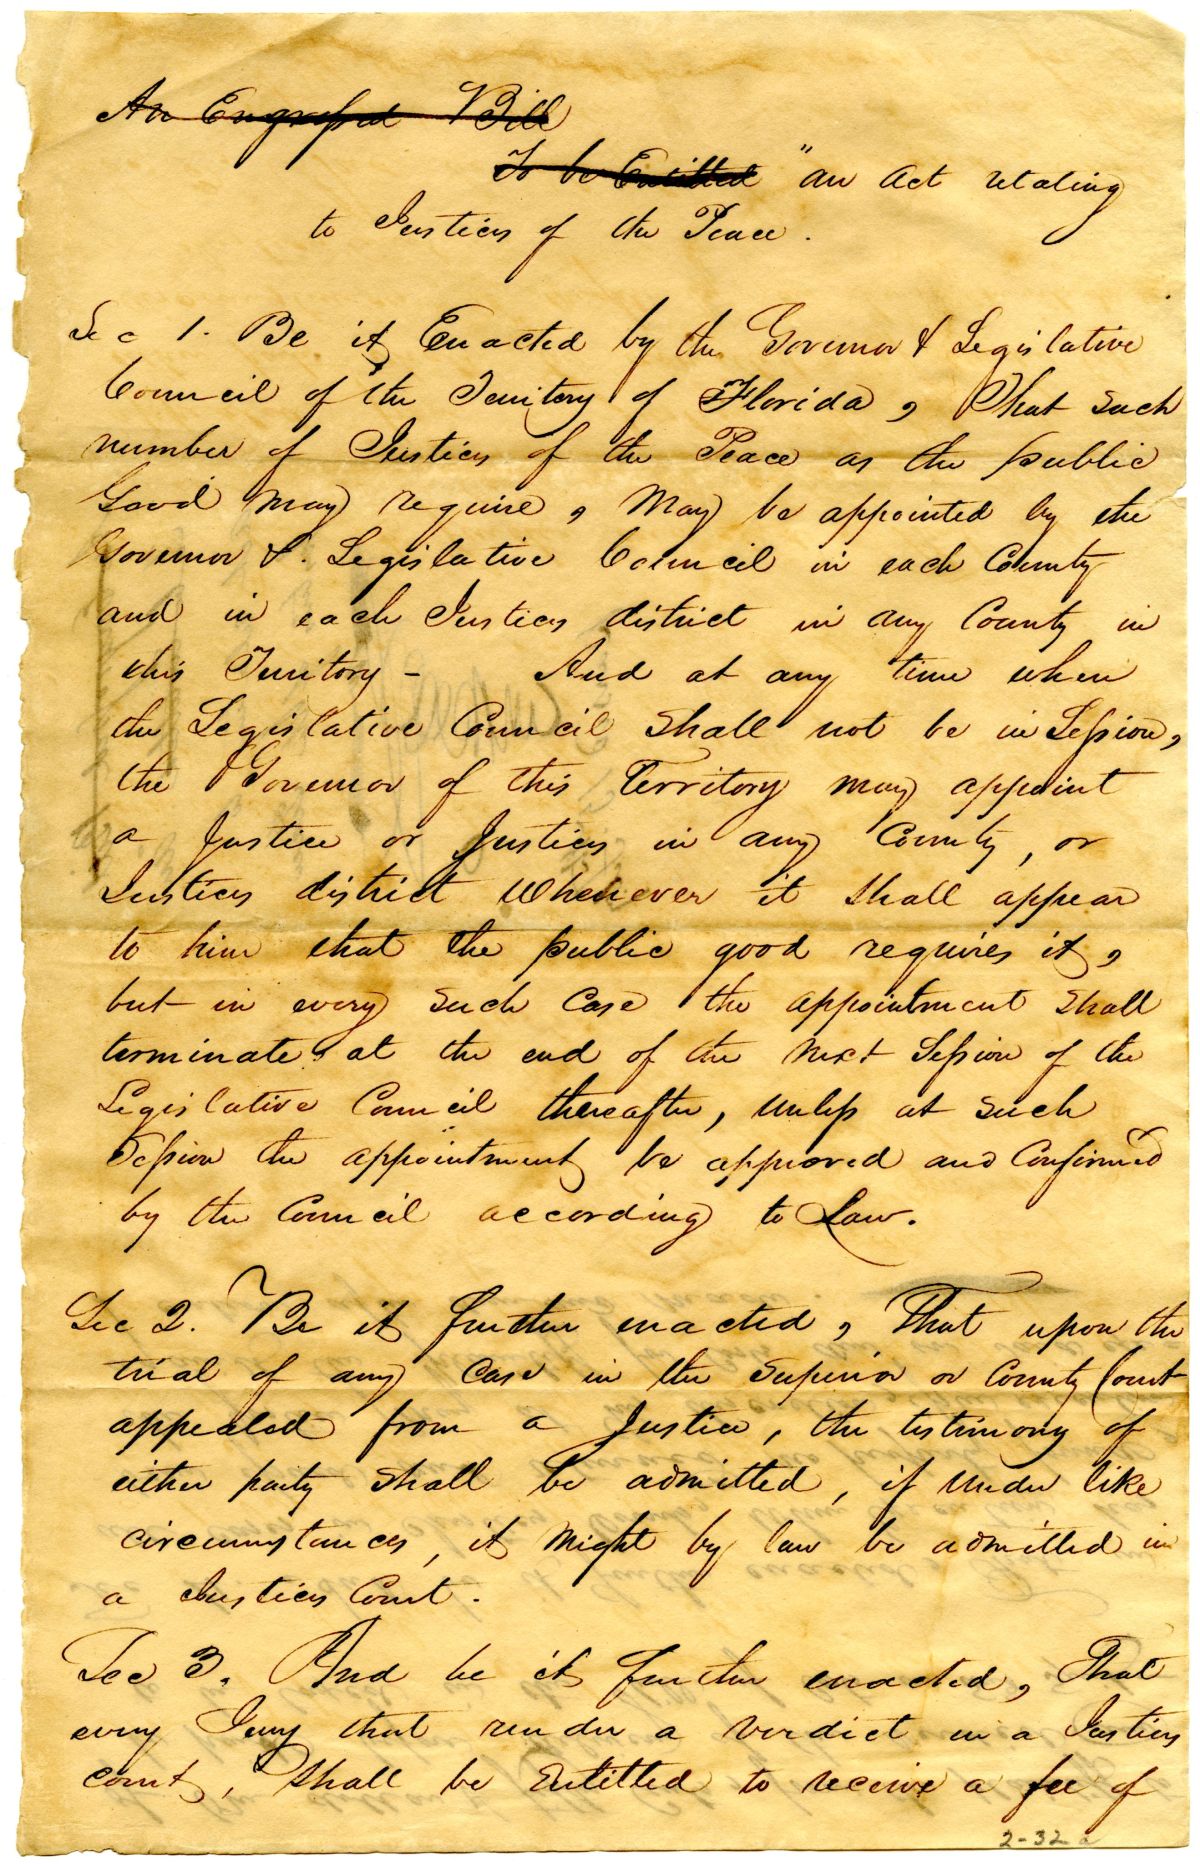 An Engrossed Bill
To be Entitled "an act relating
to Justices of the Peace.
Sec 1. Be it Enacted by the Governor & Legislative
Council of the Territory of Florida, That such
number of Justices of the Peace as the public
Good may require, may be appointed by the
Governor &. Legislative Council in each County
and in each Justices district in any County in
this Territory - And at any time when
the Legislative Council shall not be in Session,
the Governor of this Territory may appoint
a Justice or Justices in any County, or
Justices district whenever it shall appear
to him that the public good requires it,
but in every such case the appointment shall
terminate at the end of the next Session of the
Legislative Council thereafter, unless at such
Session the appointment be approved and Confirmed
by the Council according to Law.
Sec 2. Be it further enacted, That upon the
trial of any case in the Superior or County Court
appealed from a Justice, the testimony of
either party shall be admitted, if under like
circumstances, it might by law be admitted in
a Justices Court.
Sec 3. And be it further enacted, That
every Jury that render a verdict in a Justices
court, shall be Entitled to receive a fee of
2-32 a